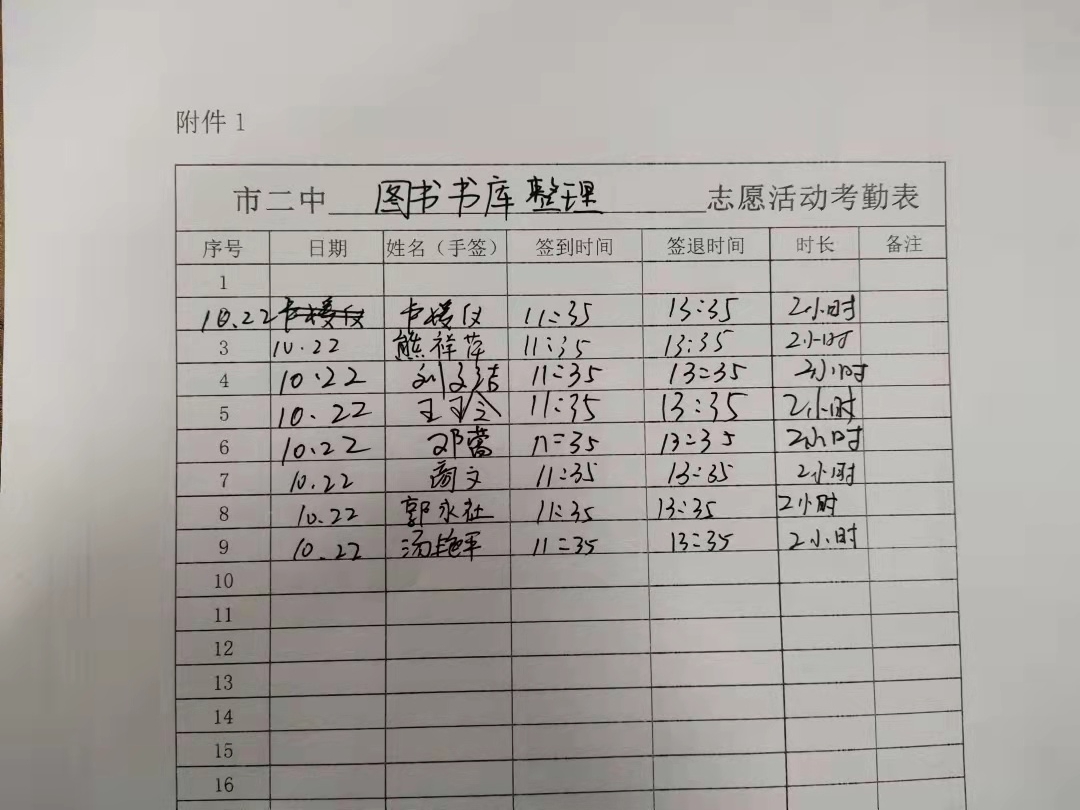 附件 1
市二中 图书书库整理 志愿活动考勤表
序号 日期 姓名（手签） 签到时间 签退时间 时长 备注
1
10.22 卡楼仪 11:35 13:35 2小时
3 10.22 熊祥萍 11:35 13:35 2小时
4 10.22 刘文洁 11:35 13:35 2小时
5 10.22 王玉含 11:35 13:35 2小时
6 10.22 邓蕾 11:35 13:35 2小时
7 10.22 商文 11:35 13:35 2小时
8 10.22 郭永社 11:35 13:35 2小时
9 10.22 汤艳平 11:35 13:35 2小时
10
11
12
13
14
15
16